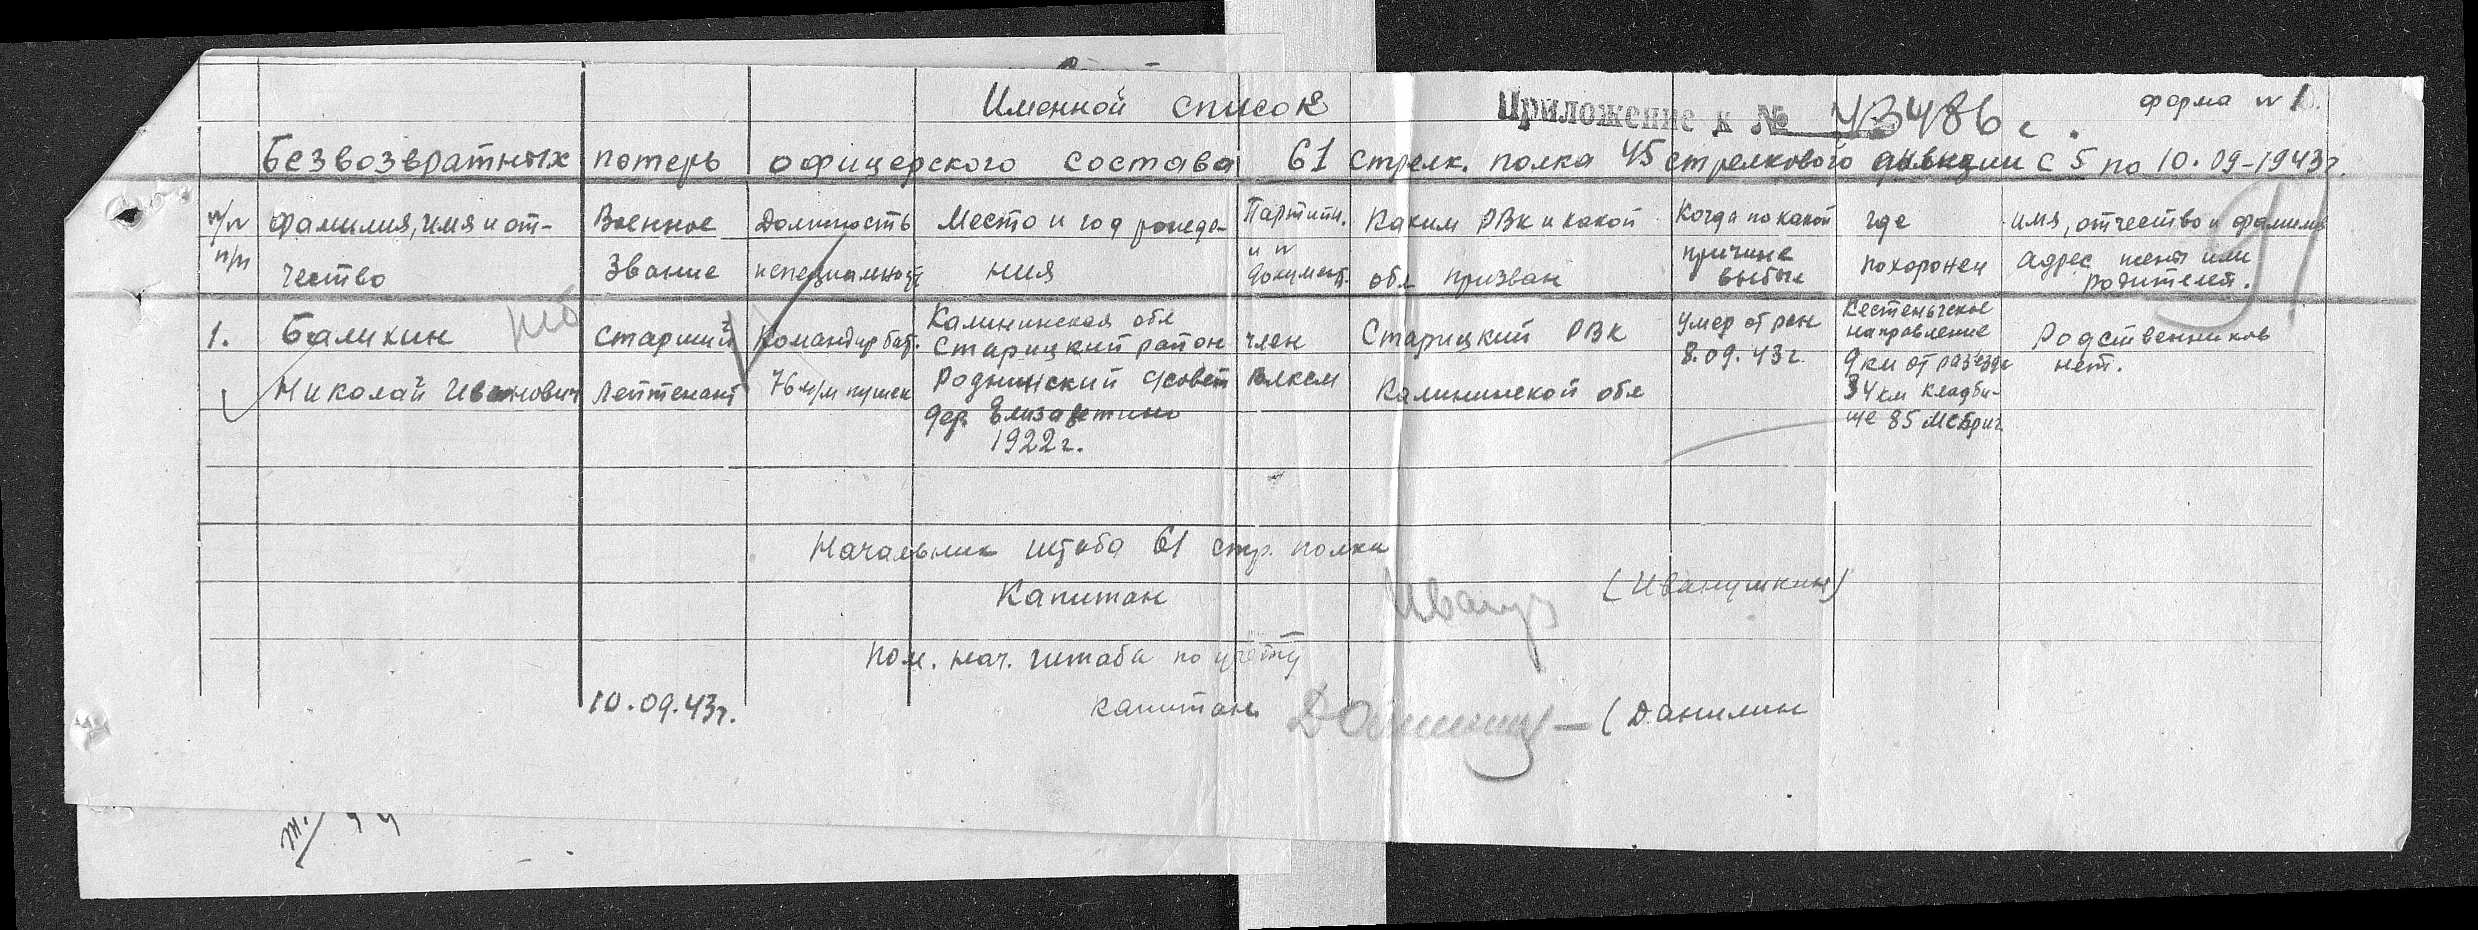 Именной список
Приложение к № 43486 с.
форма № 1.
Безвозвратных потерь офицерского состава 61 стрелк. полка 45 стрелкового дивизии с 5 по 10.09-1943г.
№/№ п/п
Фамилия, имя и отчество
Военное звание
Должность и специальность
Место и год рождения
Партийн. и № документ.
Каким РВК и какой обл призван
Когда по какой причине выбыл
где похоронен
имя, отчество и фамилия адрес жены или родителей.
91
1.
Балихин
Николай Иванович
Старший
Лейтенант
Командир бат.
76 м/м пушек
Калининская обл
Старицкий район
Роднинский с/совет
дер Елизаветино
1922г.
член
влксм
Старицкий РВК
Калининской обл
Умер от ран
8.09.43г
Кестеньгское
направление
9 км от разъезда
34 км кладби-
ще 85 МсБриг
Родственников
нет.
Начальник штаба 61 стр. полка
Капитан
(Иванушкин)
Пом. нач. штаба по учету
10.09.43г.
капитан
(Данилин